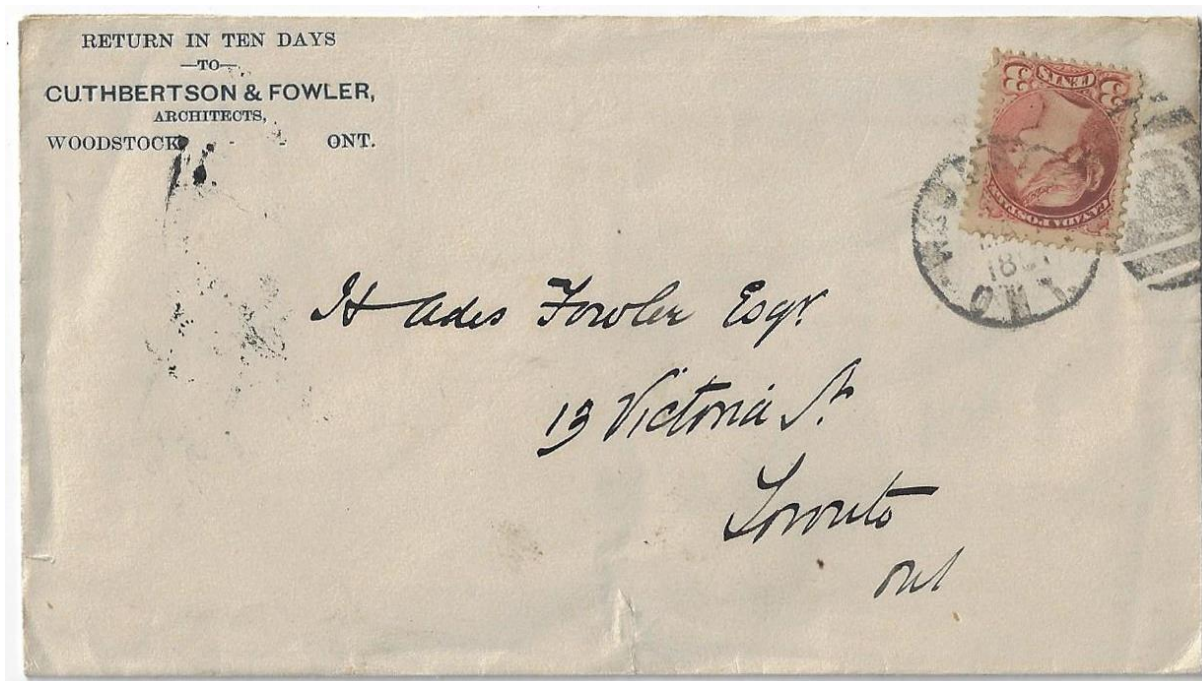 RETURN IN TEN DAYS
—TO—
CUTHBERTSON & FOWLER,
ARCHITECTS,
WOODSTOCK - - ONT.
3 CENTS 3
CANADA POSTAGE
ONT
H Ades Fowler Esqr.
13 Victoria St
Toronto
Ont